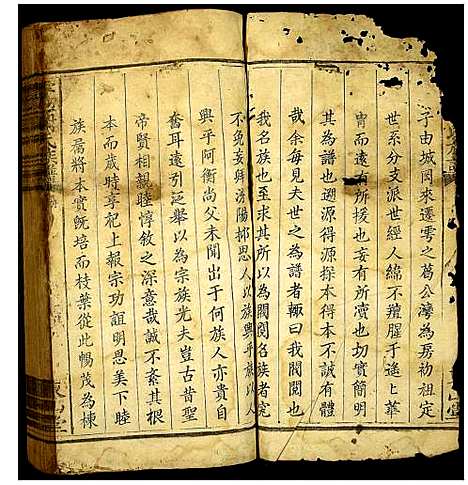 子由城岡來遷雩之葛公灣為房初祖定
世系分支派世經人緯不襍腥于遙上華
冑而遠有所援也妄有所瀆也切實簡明
其為譜也遡源得源探本得本不誠有體
哉余每見夫世之為譜者輒曰我閥閱也
我名族也至求其所以為閥閱名族者究
不免妄拜汾陽
思人以族興乎族以人
興乎阿衡尚父未聞出于何族人亦貴自
奮耳遠引泛舉以為宗族光夫豈古昔聖
帝賢相親睦惇敘之深意哉誠不紊其根
本而歲時享祀上報宗功誼明恩美下睦
族屬將本實既培而枝葉從此暢茂為棟